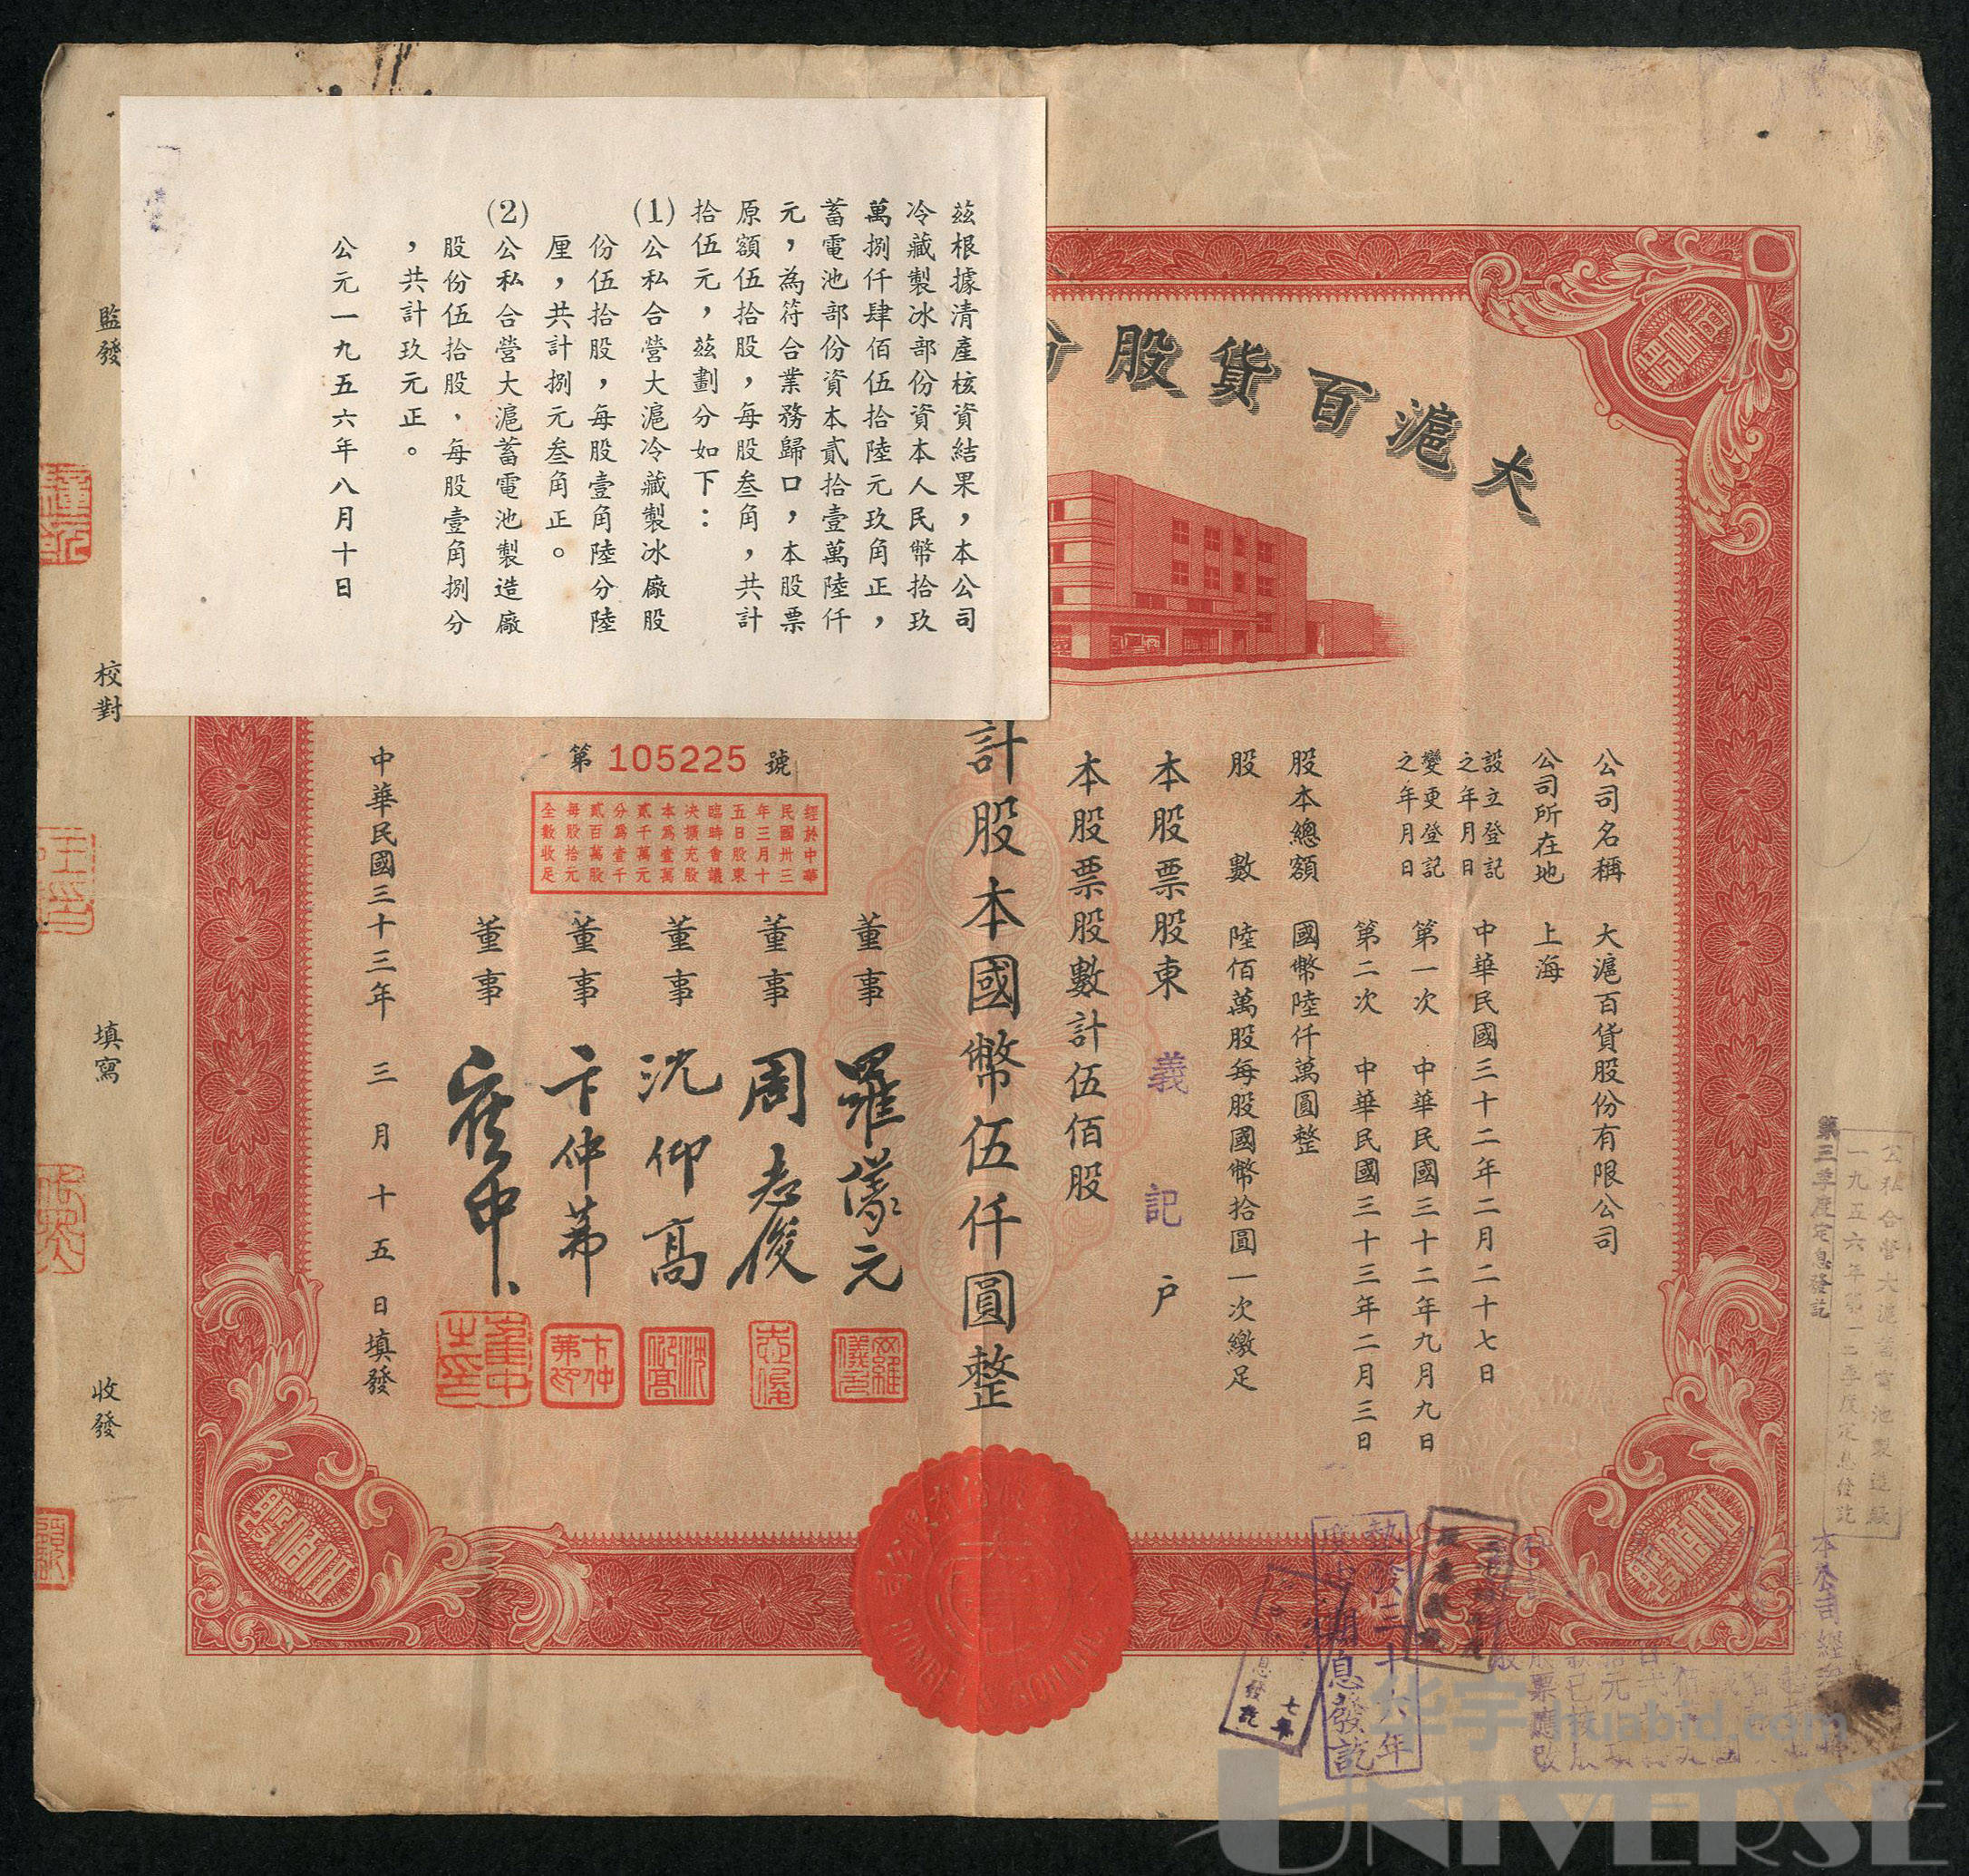 大滬百貨股份
公司名稱　大滬百貨股份有限公司
公司所在地　上海
設立登記之年月日　中華民國三十二年二月二十七日
變更登記之年月日　第一次　中華民國三十二年九月九日
第二次　中華民國三十三年二月三日
股本總額　國幣陸仟萬圓整
股數　陸佰萬股每股國幣拾圓一次繳足
本股票股東　義記户
本股票股數計伍佰股
計股本國幣伍仟圓整
第105225號
經於中華
民國卅三
年三月十
五日股東
臨時會議
決擴充股
本為壹萬
貳千萬元
分為壹千
貳百萬股
每股拾元
全數收足
董事　羅儀元
董事　周志俊
董事　沈仰高
董事　卞仲茀
董事
中華民國三十三年三月十五日填發
茲根據清產核資結果，本公司
冷藏製冰部份資本人民幣拾玖
萬捌仟肆佰伍拾陸元玖角正，
蓄電池部份資本貳拾壹萬陸仟
元，為符合業務歸口，本股票
原額伍拾股，每股叁角，共計
拾伍元，茲劃分如下：
(1)公私合營大滬冷藏製冰廠股
份伍拾股，每股壹角陸分陸
厘，共計捌元叁角正。
(2)公私合營大滬蓄電池製造廠
股份伍拾股，每股壹角捌分
，共計玖元正。
公元一九五六年八月十日
監發
校對
填寫
收發
公私合營大滬蓄電池製造廠
一九五六年第一二季度定息發訖
第三季度定息發訖
息發訖
华宇huabid.com
UNIVERSE